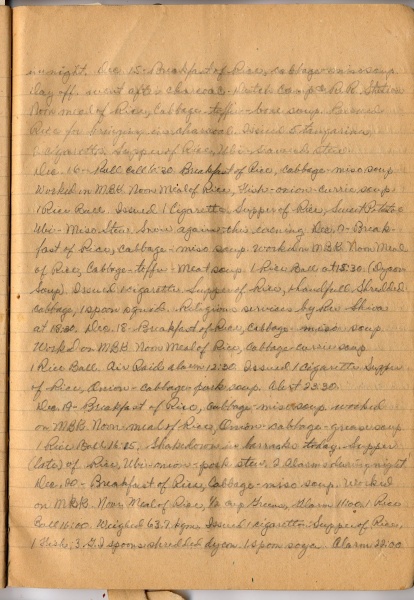 night. Dec. 15 - Breakfast of Rice, cabbage - miso soup
Day off. went after charcoal - Camp to R.R. Station
Noon meal of Rice, Cabbage - - bone soup.
Rice for charcoal. Issued 5 tangerines
1 cigarette. Supper of Rice, Ubi - stew
Dec. 16 - Roll Call 6:30. Breakfast of Rice, cabbage - miso soup
Worked in MBK. Noon Meal of Rice, Fish - onion - currie soup
1 Rice Ball. Issued 1 Cigarette. Supper of Rice, Sweet Potato -
Ubi - Miso Stew. Snow again this evening Dec. 17 - Break-
fast of Rice, cabbage - miso soup. Worked in MBK. Noon Meal
of Rice, Cabbage - - Meat soup. 1 Rice Ball at 15:30 (
Soup). Issued 1 cigarette. Supper of Rice, Handfull Shredded
cabbage, 1 spoon squid. Religious services by Rev.
at 18:30. Dec. 18 - Breakfast of Rice, Cabbage - miso soup
Worked on MBK. Noon Meal of Rice, Cabbage - currie soup
1 Rice Ball. Air Raid alarm 12:00. Issued 1 cigarette. Supper
of Rice, Onion - cabbage - pork soup. Alert 23:30.
Dec. 19 - Breakfast of Rice, Cabbage - miso soup. worked
on MBK. Noon meal of Rice, Onion - cabbage - grease soup
1 Rice Ball 16:15. Shakedown in barracks today. Supper
(late) of Rice, Ubi - onion - pork stew. 2 Alarms during night
Dec. 20 - Breakfast of Rice, Cabbage - miso soup. Worked
on MBK. Noon Meal of Rice, Greens, Alarm 11:00. 1 Rice
Ball 16:00. Weighed 63.7 kgm. Issued 1 cigarette. Supper of Rice,
1 Fish, 3 spoons shredded dycon. 1 spoon soya. Alarm 22:00